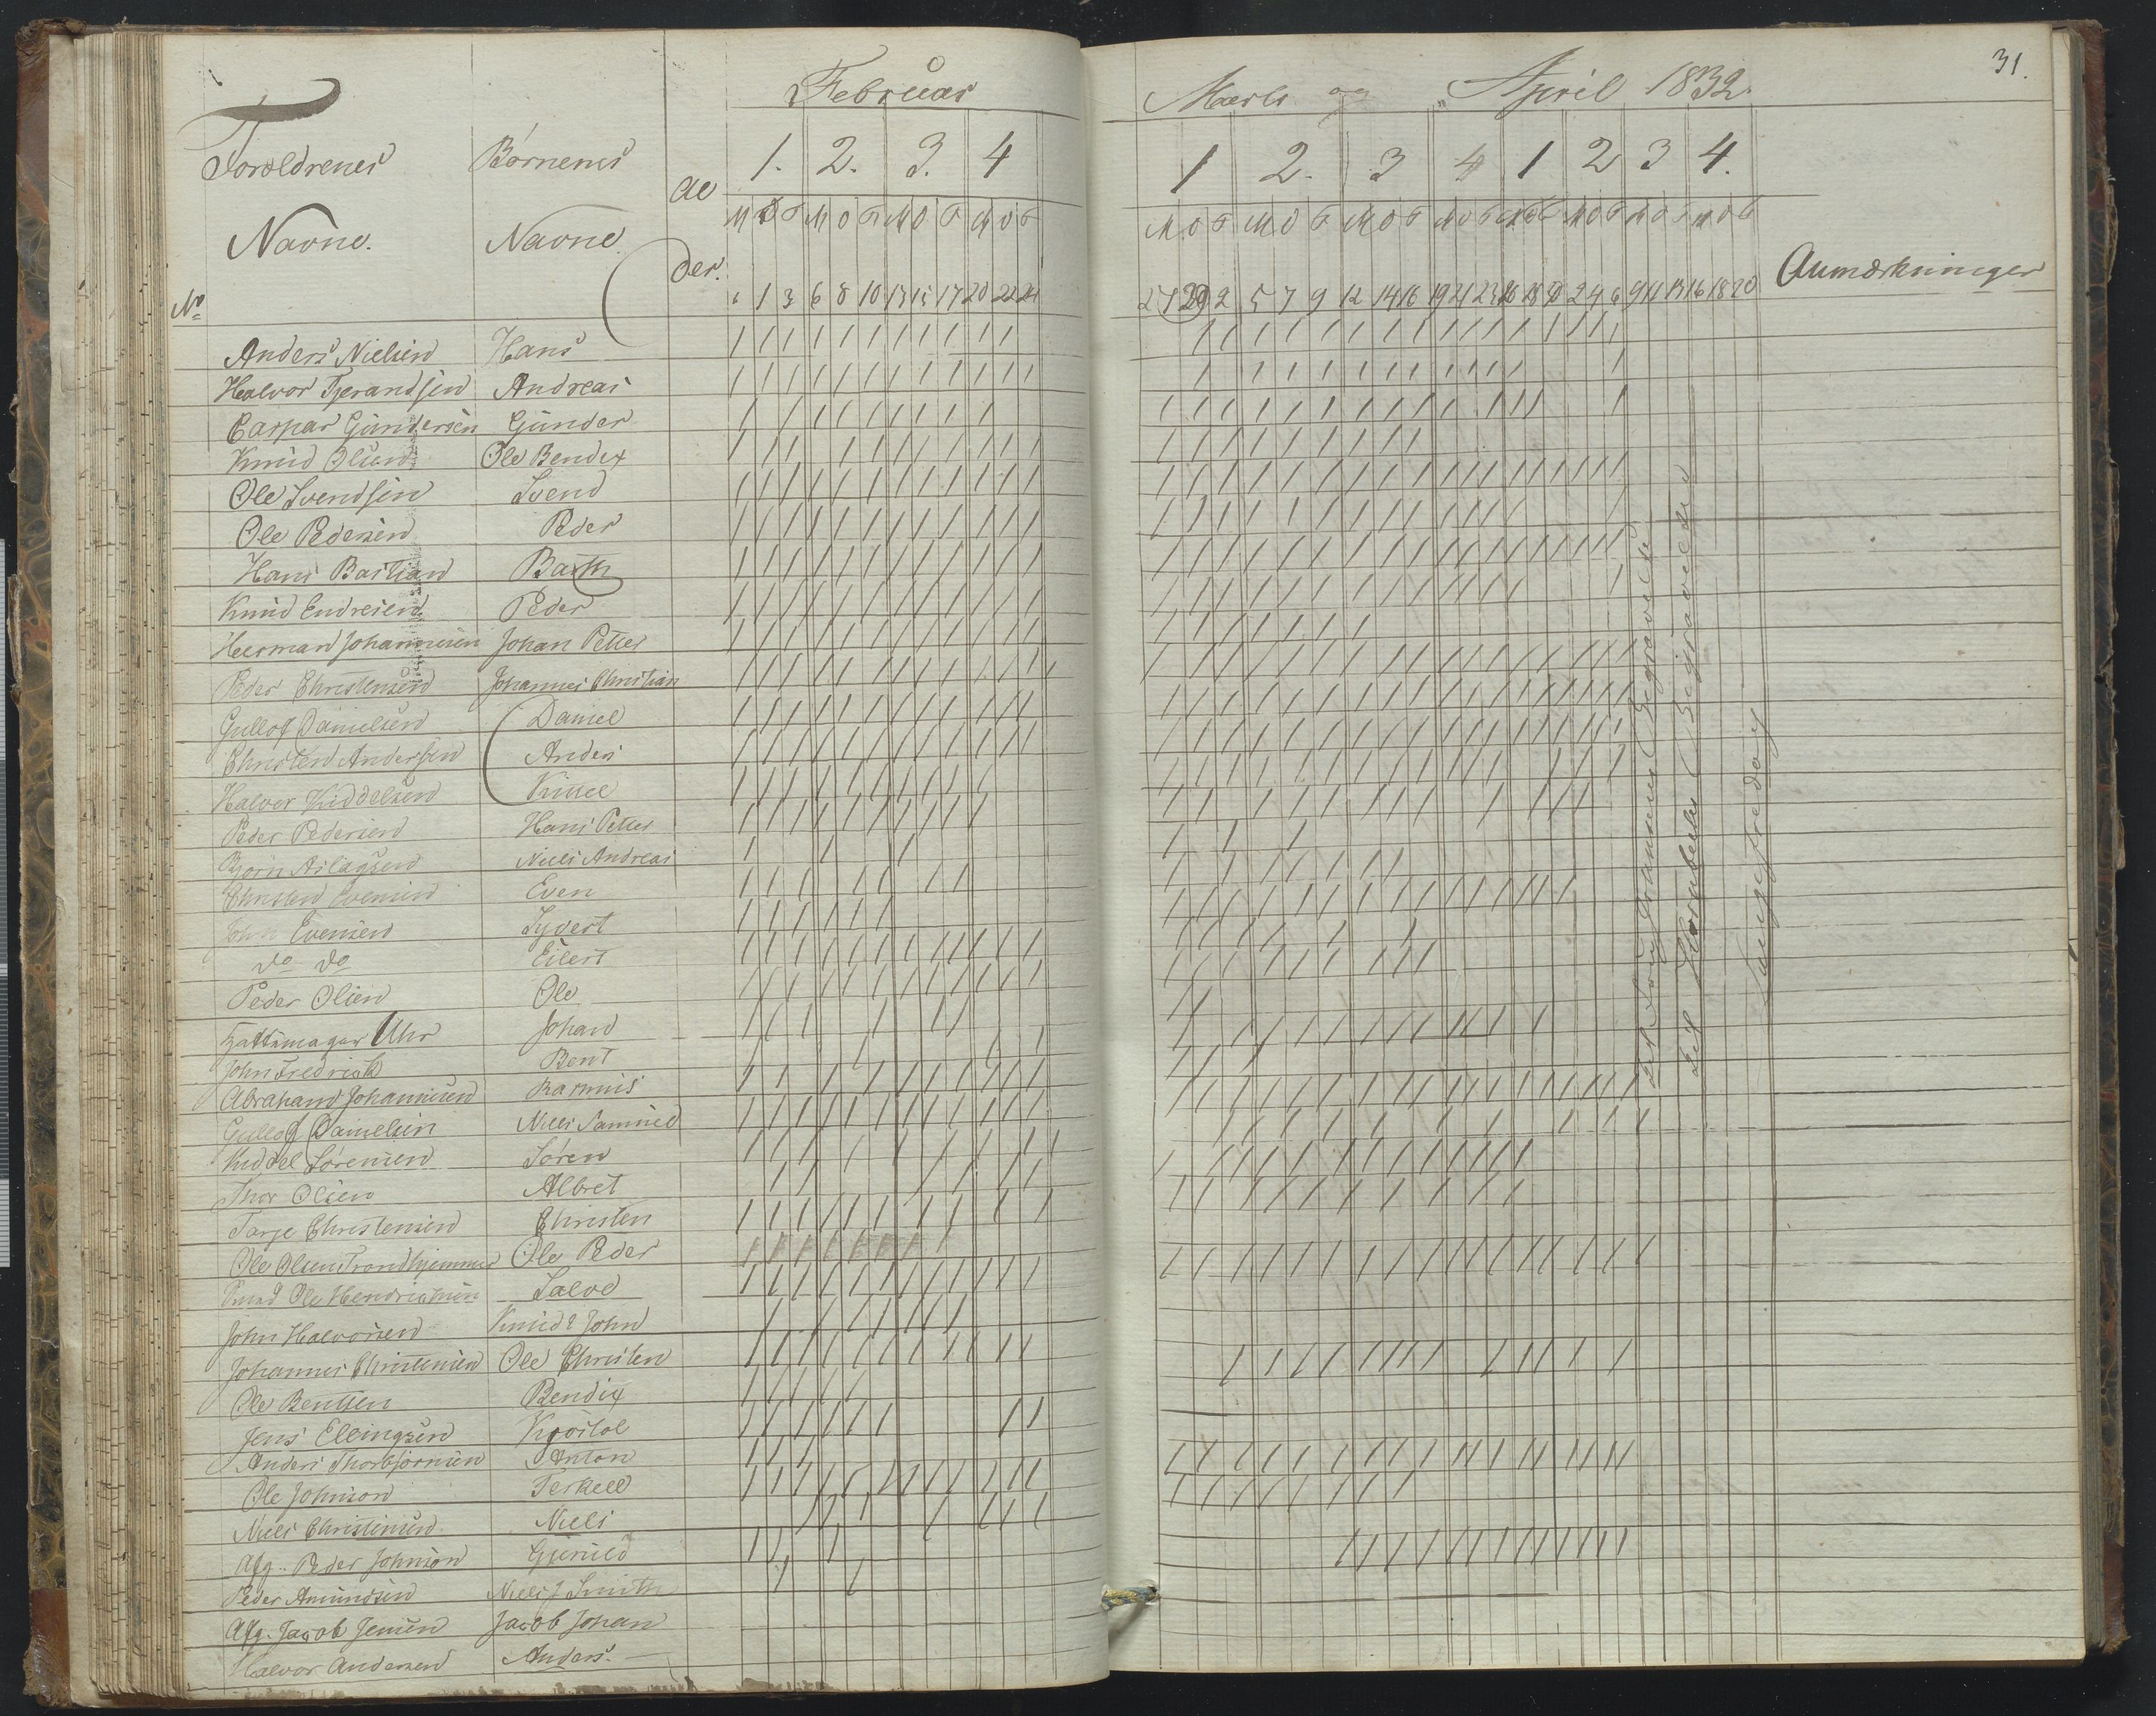 Februar
Marts og April 1832.
31.
Forældrenes Børnenes
1. 2. 3. 4
1 2. 3 4 1 2 3 4.
Al
M O F M O F M O F M O F
M O F M O F M O F M O F M O F M O F M O F
Navne. Navne
der.
Anmærkninger
No
1 3 6 8 10 13 15 17 20 22 24
27 29 2 5 7 9 12 14 16 19 21 23 2 4 6 9 11 13 16 18 20
Anders Nielsen Hans
Halvor Tjerandsen Andreas
Caspar Gundersen Gunder
Knud Olsen Ole Bendix
Ole Svendsen Svend
Ole Pedersen Peder
Hans Bastian Barth
Knud Endresen Peder
Herman Johannesen Johan Petter
Peder Christensen Johannes Christian
Gullof Danielsen Daniel
Christen Andersen Anders
Halvor Kiddelsen Kittel
Peder Pedersen Hans Petter
Bjørn Aslagsen Niels Andreas
Christen Evensen Even
John Evensen Syvert
do do Eilert
Peder Olsen Ole
Hattemager Uhr Johan
John Fredrich Bent
Abraham Johannesen Rasmus
Gullof Danielsen Niels Samuel
Kiddel Sørensen Søren
Thor Olsen Albret
Tarje Christensen Christen
Ole Olsen Trondhjemmer Ole Peder
Ole Hendrichsen Salve
John Halvorsen Knud & John
Johannes Christensen Ole Christen
Ole Bentsen Bendix
Jens Ellingsen
Anders Thorbjørnsen Anton
Ole Johnson Terkell
Niels Christensen Niels
Afg. Peder Johnson
Peder Amundsen Niels J Smith
Afg. Jacob Jensen Jacob Johan
Halvor Andersen Anders.
Begravelse
Begravelse
Langefredag